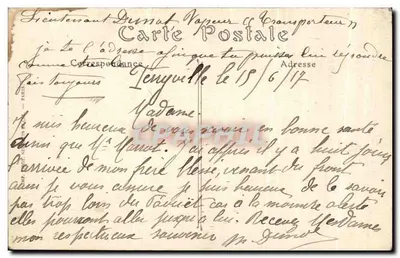 Lieutenant Dumat Vapeur "Transporteur"
je te l'adresse afin que tu puisses lui répondre
Carte Postale
Correspondance Adresse
comme
fais toujours le 15/6/17
Madame
suis heureux de vous savoir en bonne santé
ainsi que Mr J'ai appris il y a huit jours
l'arrivée de mon frère blessé, venant du front
aussi je vous assure je suis heureux de le savoir
pas trop loin du car à la moindre alerte
elles pourront aller jusqu'à lui. Recevez Mesdames
mon respectueux souvenir